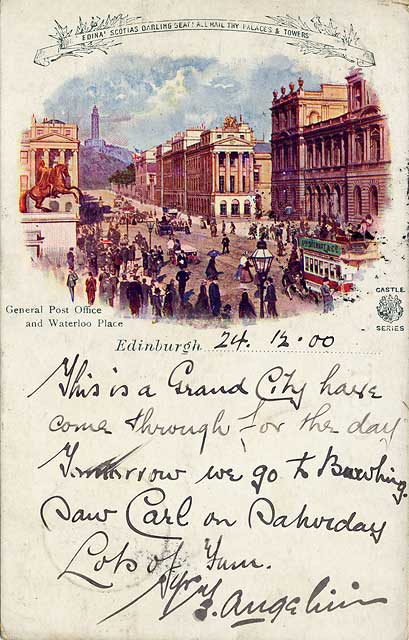 EDINA! SCOTIA'S DARLING SEAT! ALL HAIL THY PALACES & TOWERS
General Post Office
and Waterloo Place
CASTLE
SERIES
Edinburgh 24. 12. 00
This is a Grand City have
come through for the day
Tomorrow we go to
Saw Carl on Saturday
Lots of Fun.
Angelini